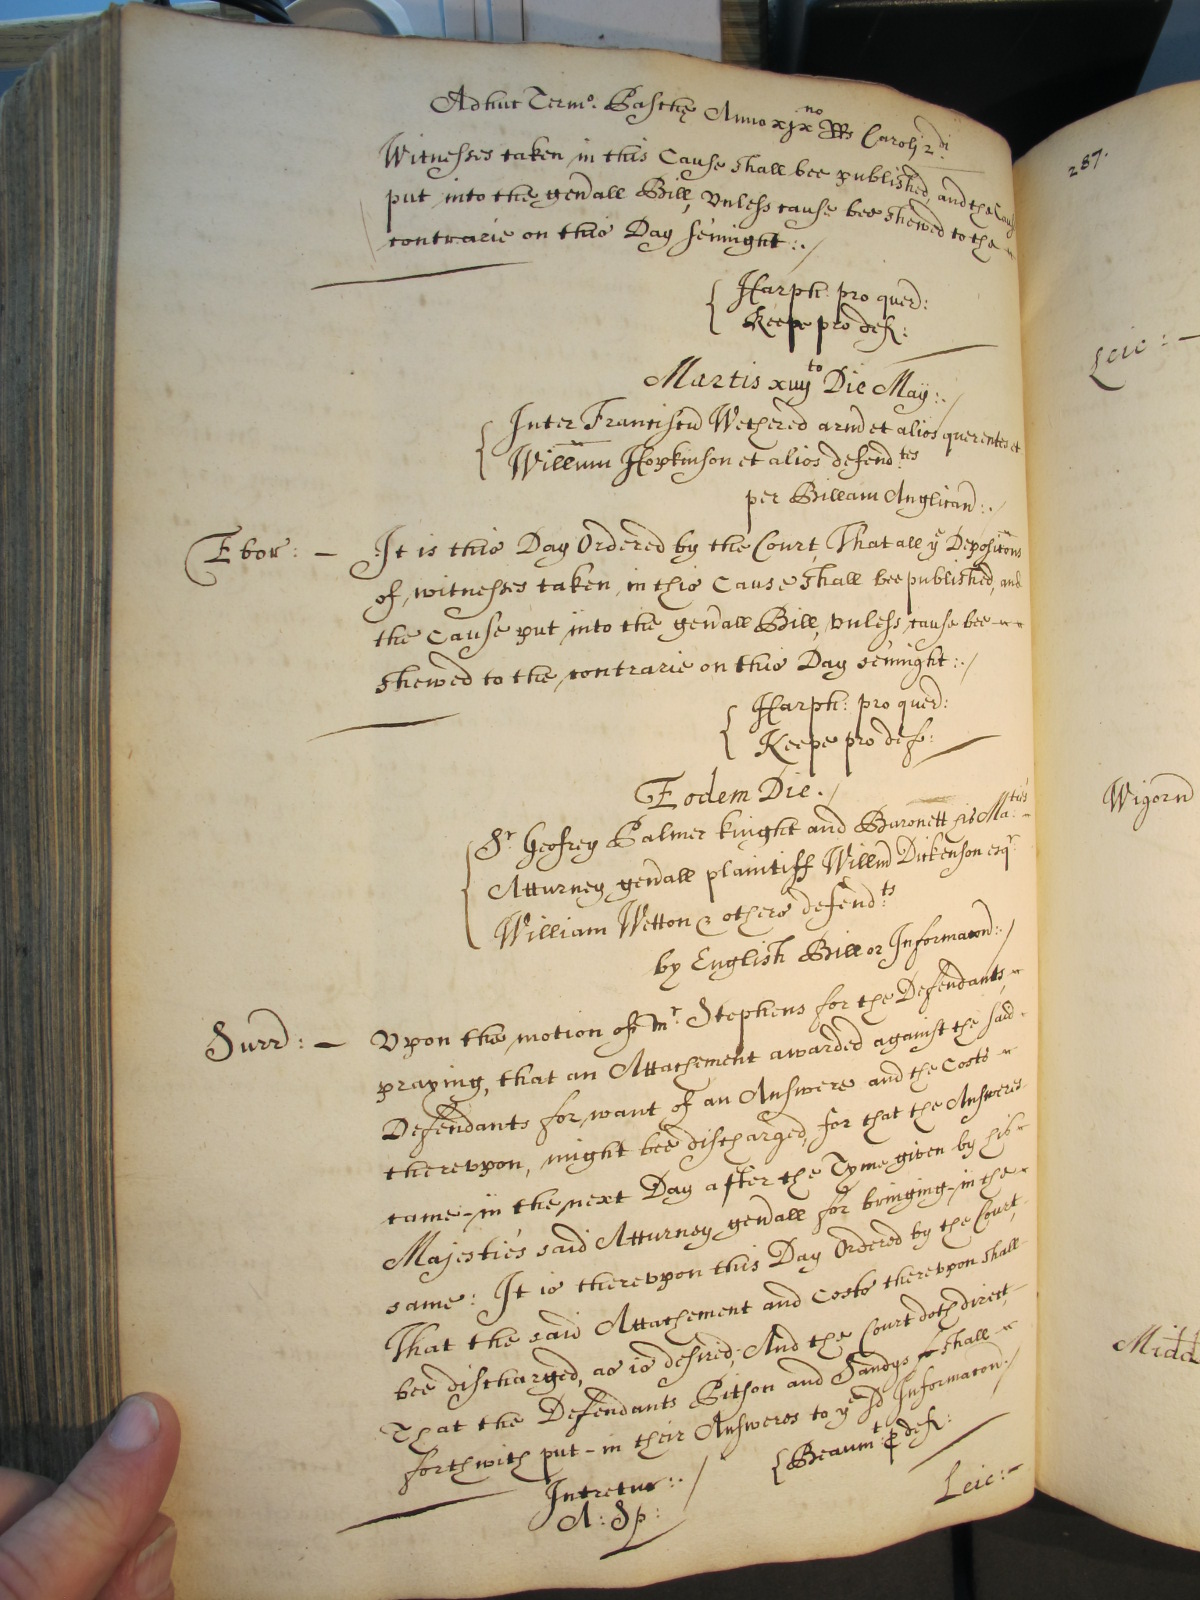 Adhuc Termo. Paschę Anno xjx no RRs Carolj 2di.
Witnesses taken in this Cause shall bee published, and the Cause
put into the gen'all Bill, vnless cause bee shewed to the
contrarie on this Day sennight:./
{ Harph: pro quer:
Keepe pro def:
Martis xiiijto Die Maij:./
{ Inter Franciscu Wethered arm et alios querentes et
Willum Hopkinson et alios defend:tes
per Billam Anglican:./
Ebor: — It is this Day Ordered by the Court, That all ye Depositons
of witnesses taken in this Cause shall bee published, and
the Cause put into the gen'all Bill, vnless cause bee
shewed to the contrarie on this Day sennight:./
{ Harph: pro quer:
Keepe pro def:
Eodem Die./
{ Sr. Geofrey Palmer knight and Baronett his Ma:ties
Atturney gen'all plaintiff Willm Dickenson esqr.
William Wetton & others defend:ts
by English Bill or Informacon:./
Surr: — Vpon the motion of Mr. Stephens for the Defendants,
praying, that an Attachement awarded against the said
Defendants for want of an Answere and the Costs
therevpon, might bee discharged, for that the Answeres
came-in the next Day after the Tyme given by his
Majesties said Atturney gen'all for bringing-in the
same: It is therevpon this Day Ordered by the Court,
That the said Attachement and Costs therevpon shall
bee discharged, as is desired; And the Court doth direct,
That the Defendants Pitson and Sandys shall
forthwith put-in their Answeres to ye sd Informacon./
Intretur:./
{ Beaumt. p def:
A: Sp:
Leic:—
287.
Leic: —
Wigorn
Midd